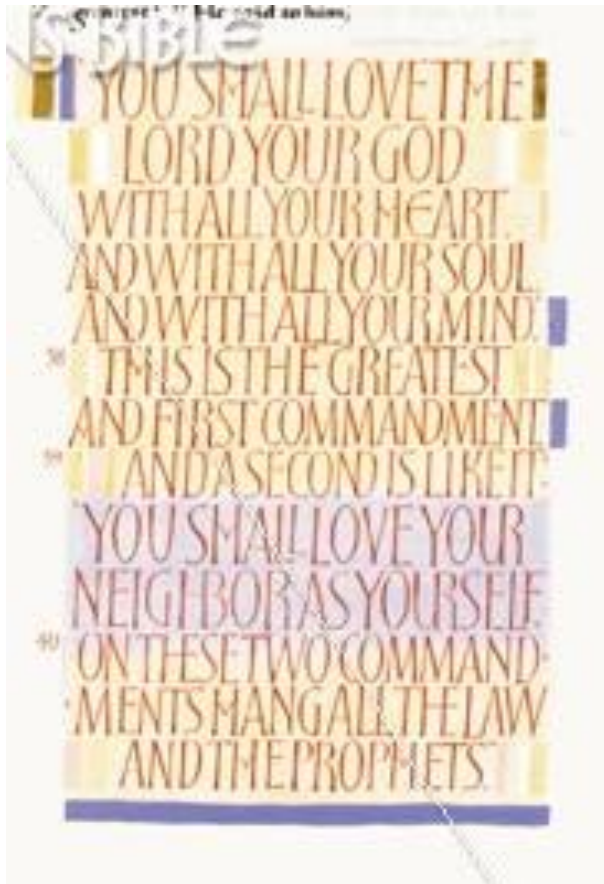 said to him,
IS BIBLE
"YOU SHALL LOVE THE
LORD YOUR GOD
WITH ALL YOUR HEART,
AND WITH ALL YOUR SOUL,
AND WITH ALL YOUR MIND."
38 THIS IS THE GREATEST
AND FIRST COMMANDMENT.
39 AND A SECOND IS LIKE IT:
"YOU SHALL LOVE YOUR
NEIGHBOR AS YOURSELF."
40 ON THESE TWO COMMAND-
MENTS HANG ALL THE LAW
AND THE PROPHETS."